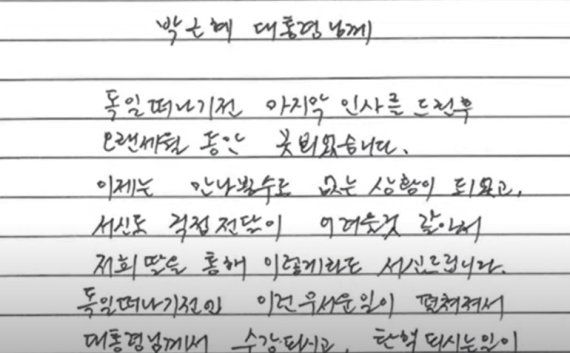 박근혜 대통령님께
독일떠나기전 마지막 인사를 드린후
오랜세월 동안 못뵈었습니다.
이제는 만나뵐수도 없는 상황이 되었고,
서신도 직접전달이 어려울것 같아서
저희 딸을 통해 이렇게라도 서신드립니다.
독일떠나기전엔 이런무서운일이 펼쳐져서
대통령님께서 수감되시고, 탄핵되시는일이